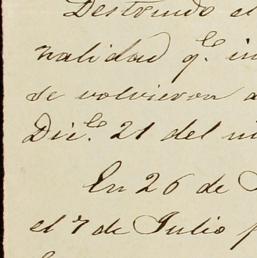 Destruido el
nalidad q.e in
se volvieron a
Dic.e 21 del m
En 26 de J
el 7 de Julio p